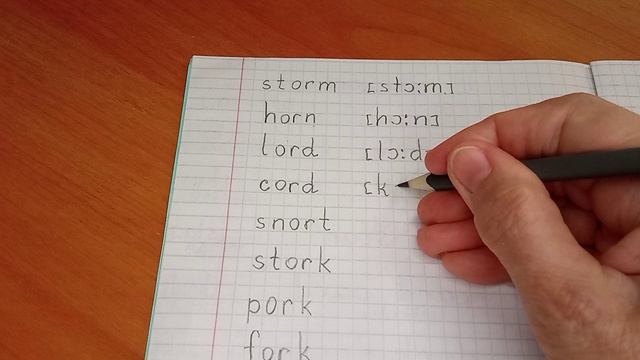 storm [stɔ:m]
horn [hɔ:n]
lord [lɔ:d
cord [k
snort
stork
pork
fork